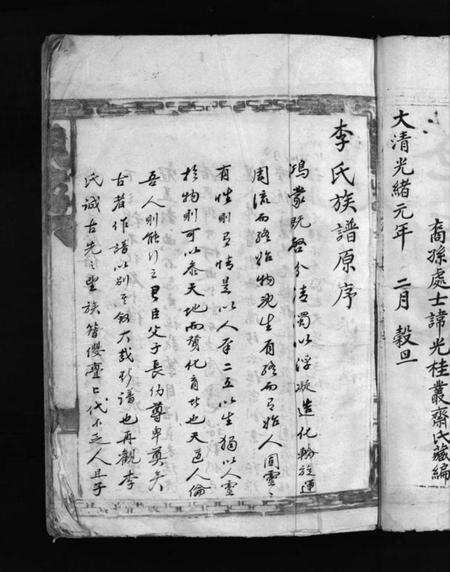 大清光緒元年 二月 穀旦
裔孫處士諱光桂叢齋氏藏編
李氏族譜原序
鴻蒙既啓分清濁以浮凝造化輪旋運
周流而終始物死生有終而有始人固靈
有性則有情是以人本二五以生獨以人靈
於物則可以參天地而贊化育世也天道人倫
吾人則能行之君臣父子長幼尊卑奠矣
古者作譜以別至親大哉斯譜也再觀李
氏誠古先之聖族簪纓歷代不乏人且子